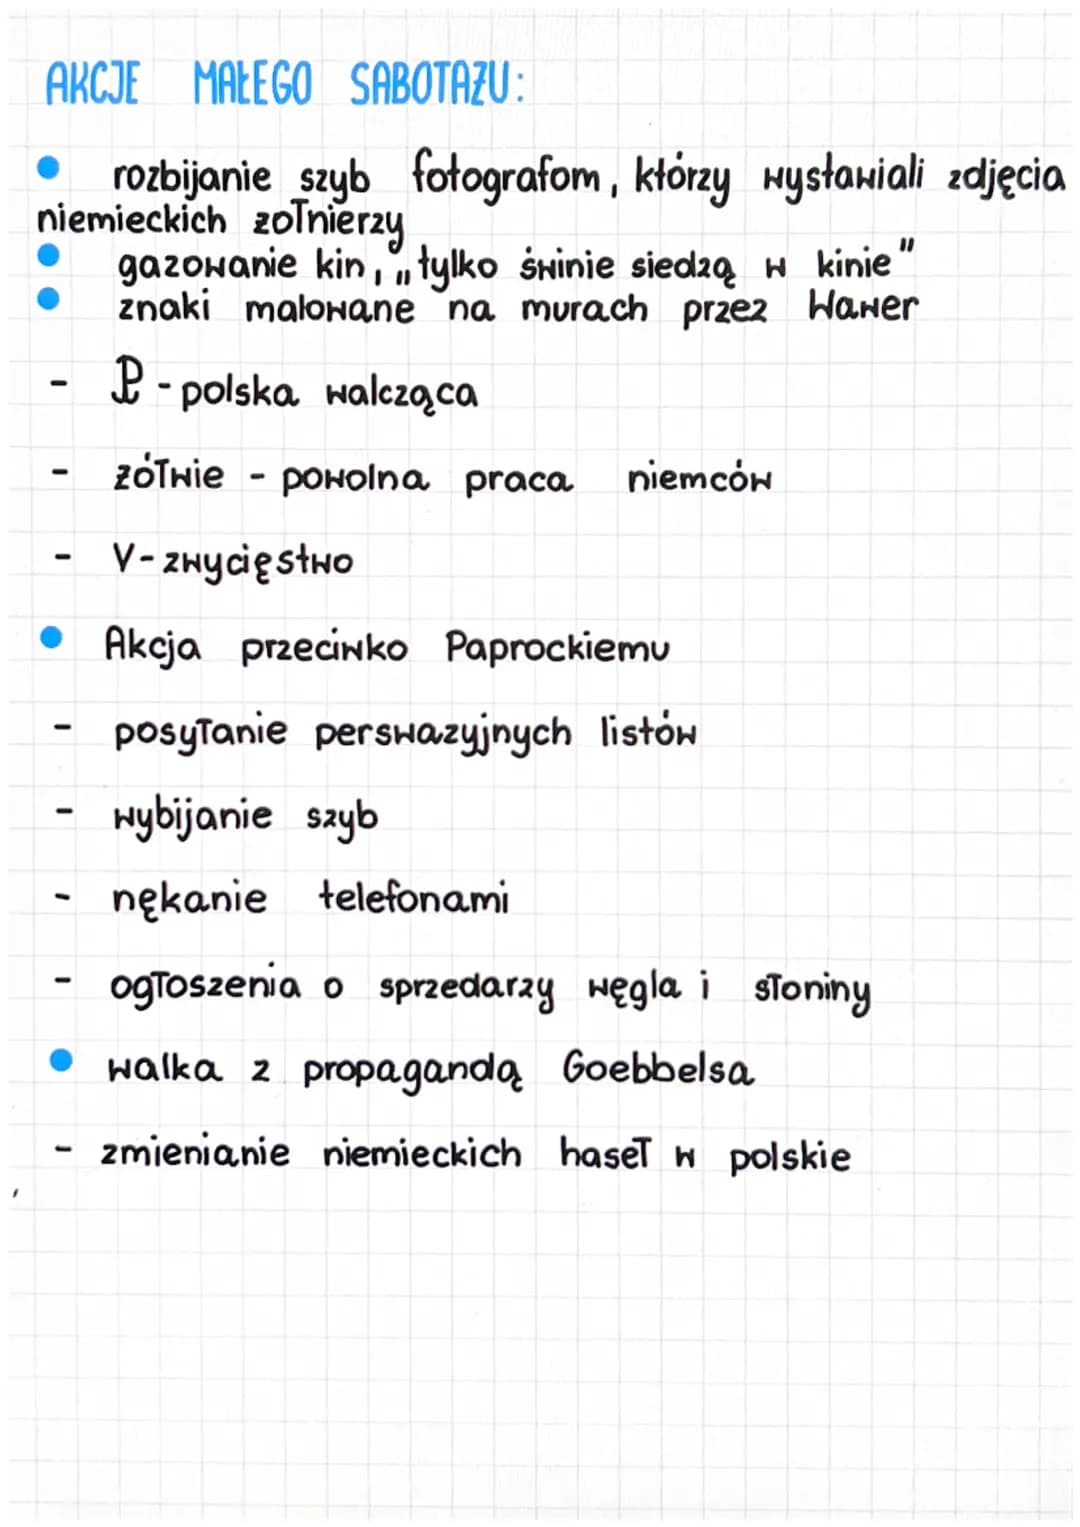 AKCJE MAŁEGO SABOTAŻU:
• rozbijanie szyb fotografom, którzy wystawiali zdjęcia
niemieckich żołnierzy
• gazowanie kin, „tylko świnie siedzą w kinie"
• znaki malowane na murach przez Wawer
- P - polska walcząca
- żółwie - powolna praca niemców
- V - zwycięstwo
• Akcja przeciwko Paprockiemu
- posyłanie perswazyjnych listów
- wybijanie szyb
- nękanie telefonami
- ogłoszenia o sprzedarzy węgla i słoniny
• walka z propagandą Goebbelsa
- zmienianie niemieckich haseł w polskie